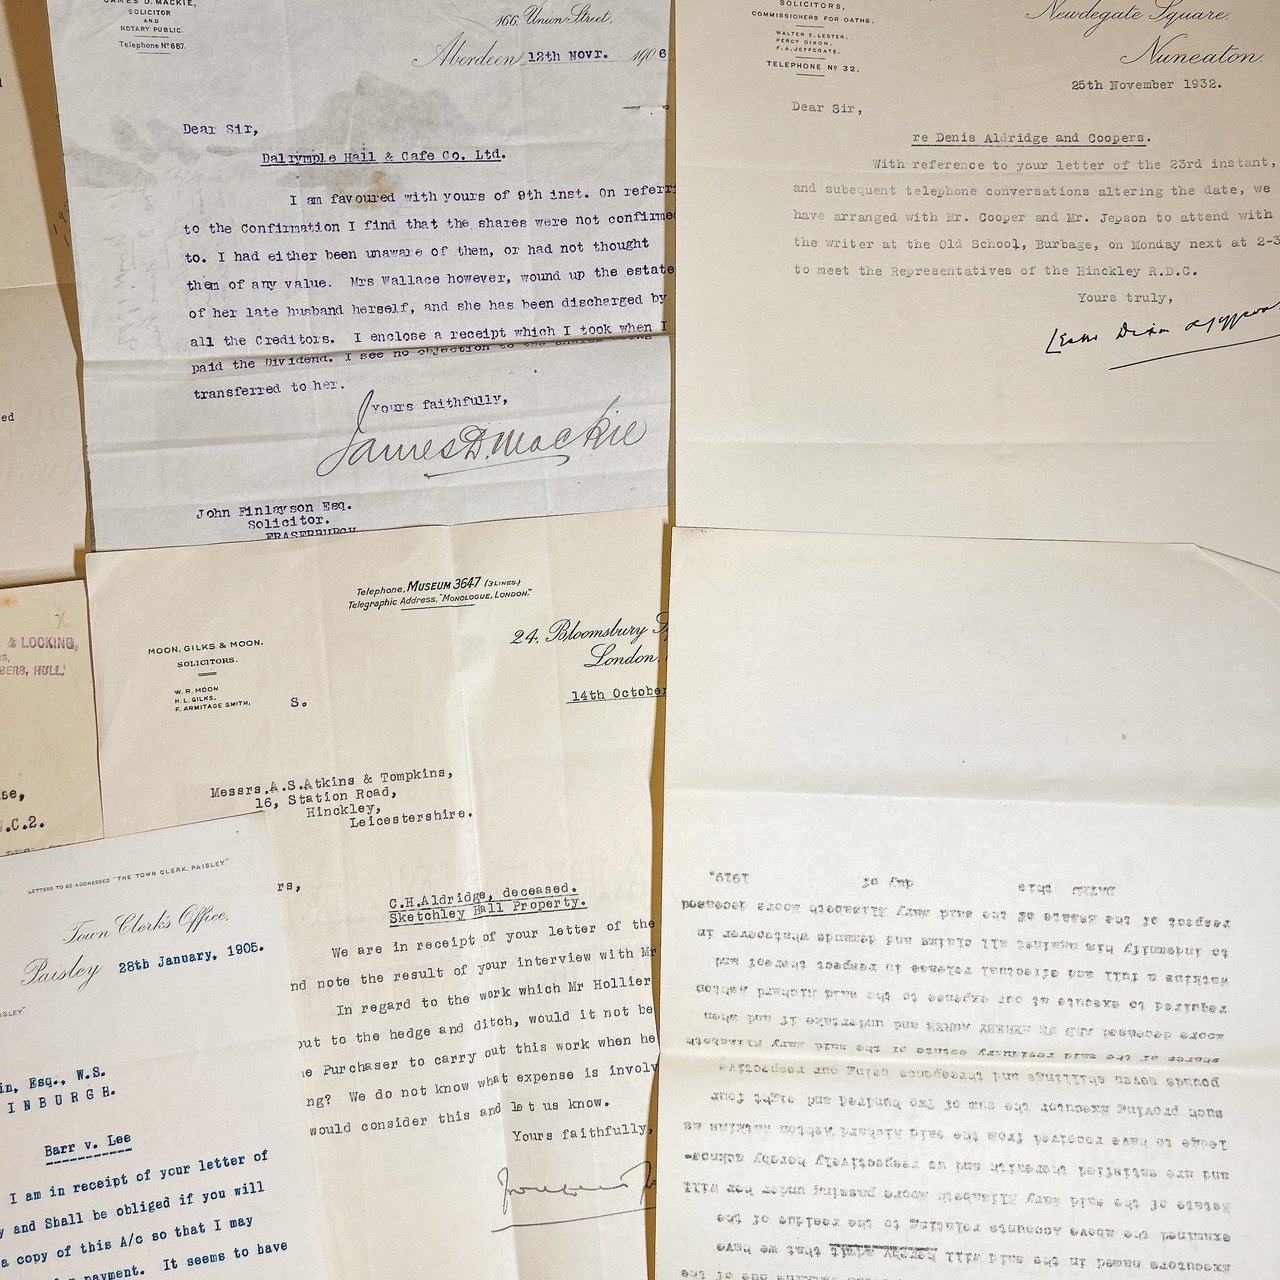 ed
JAMES D. MACKIE,
SOLICITOR
AND
NOTARY PUBLIC.
Telephone Nº 687.
166, Union Street,
Aberdeen 12th Novr. 1906
Dear Sir,
Dalrymple Hall & Cafe Co. Ltd.
I am favoured with yours of 9th inst. On referri
to the Confirmation I find that the shares were not confirmed
to. I had either been unaware of them, or had not thought
them of any value. Mrs Wallace however, wound up the estate
of her late husband herself, and she has been discharged by
all the Creditors. I enclose a receipt which I took when I
paid the Dividend. I see no objection to the shares being
transferred to her.
Yours faithfully,
James D. Mackie
John Finlayson Esq.
Solicitor.
FRASERBURGH
SOLICITORS,
COMMISSIONERS FOR OATHS.
WALTER E. LESTER.
PERCY DIXON.
F. A. JEFFCOATE.
TELEPHONE Nº 32.
Newdegate Square,
Nuneaton.
25th November 1932.
Dear Sir,
re Denis Aldridge and Coopers.
With reference to your letter of the 23rd instant,
and subequent telephone conversations altering the date, we
have arranged with Mr. Cooper and Mr. Jepson to attend with
the writer at the Old School, Burbage, on Monday next at 2-3
to meet the Representatives of the Hinckley R.D.C.
Yours truly,
& LOCKING,
BERS, HULL
se,
.C.2.
Telephone, MUSEUM 3647 (3 LINES.)
Telegraphic Address, "MONOLOGUE, LONDON."
MOON, GILKS & MOON.
SOLICITORS.
W. R. MOON
H. L. GILKS.
F. ARMITAGE SMITH.
24, Bloomsbury
London,
14th October
S.
Messrs.A.S.Atkins & Tompkins,
16, Station Road,
Hinckley,
Leicestershire.
rs,
C.H.Aldridge, deceased.
Sketchley Hall Property.
We are in receipt of your letter of the
nd note the result of your interview with Mr
In regard to the work which Mr Hollier
out to the hedge and ditch, would it not be
e Purchaser to carry out this work when he
ng? We do not know what expense is involv
would consider this and let us know.
Yours faithfully,
LETTERS TO BE ADDRESSED "THE TOWN CLERK, PAISLEY"
Town Clerk's Office,
Paisley 28th January, 1905.
SLEY"
in, Esq., W.S.
INBURGH.
Barr v. Lee
I am in receipt of your letter of
y and Shall be obliged if you will
a copy of this A/c so that I may
payment. It seems to have
Executors named in the said will hereby admit that we have
examined the above Accounts relating to the residue of the
Estate of the said Mary Elizabeth Moore passing under her will
and are satisfied therewith and we respectively hereby acknow-
ledge to have received from the said Richard Ashton Watkins as
such proving Executor the sum of Two hundred and eight four
pounds seven shillings and threepence being our respective
shares of the said residuary estate of the said Mary Elizabeth
Moore deceased AND WE HEREBY AGREE and undertake if and when
required to execute at our expense to the said Richard Ashton
Watkins a full and effectual release in respect thereof and
to indemnify him against all claims and demands whatsoever in
respect of the Estate of the said Mary Elizabeth Moore deceased
DATED this day of 1929.